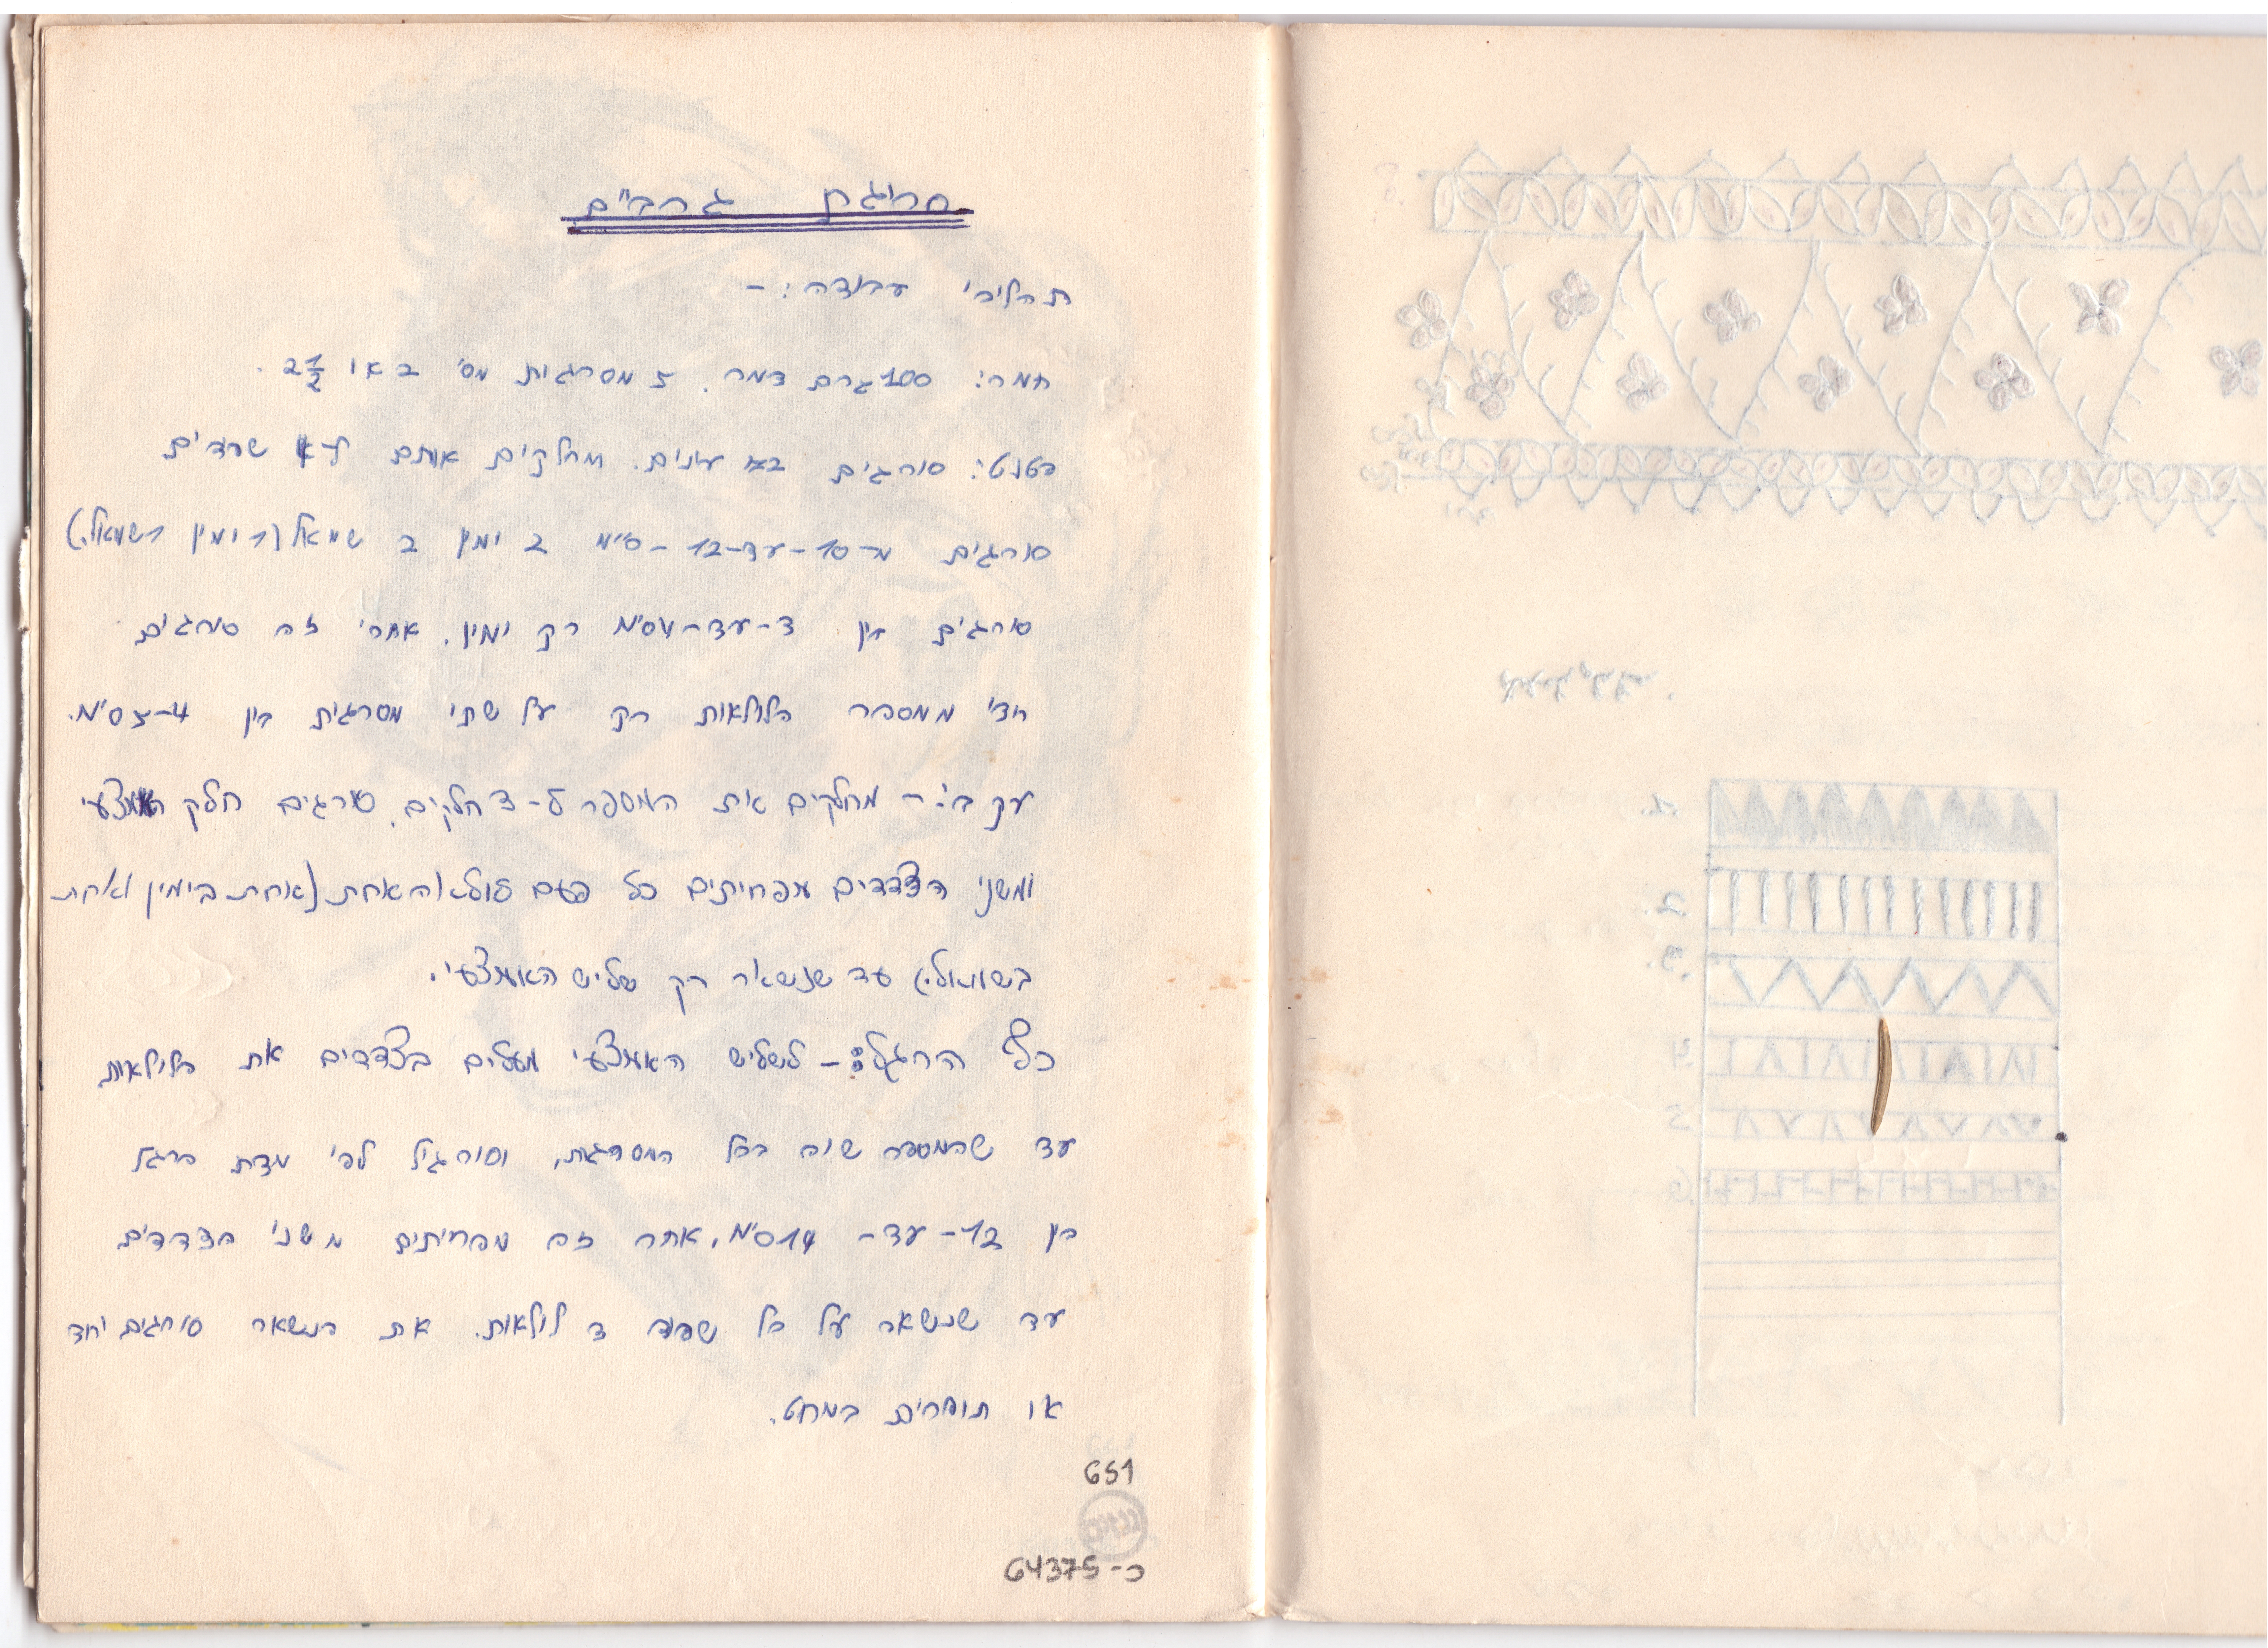 סריגת גרביים
תהליכי עבודה: –
חמר: 100 גרם צמר. 5 מסרגות מס' 2 או 2½.
פטנט: סורגים עינים. מחלקים אותם ל-4 שפודים
סורגים מ-10-עד-12-ס"מ 2 ימין 2 שמאל (1 ימין 1 שמאל.)
סורגים בין 3-עד-4 ס"מ רק ימין. אחרי זה סורגים
חצי ממספר הלולאות רק על שתי מסרגות בין 4-5 ס"מ.
עקב: – מחלקים את המספר ל-3 חלקים. סורגים חלק האמצעי
ומשני הצדדים מפחיתים כל פעם לולאה אחת (אחת בימין ואחת
בשמאל.) עד שנשאר רק שליש האמצעי.
כף הרגל: – לשליש האמצעי מעלים בצדדים את הלולאות
עד שהמספר שוה בכל המסרגות, וסורגים לפי מדת הרגל
בין 12 – עד – 14 ס"מ, אחר זה מפחיתים משני הצדדים
עד שנשאר על כל שפוד 3 לולאות. את הנשאר סורגים יחד
או תופרים במחט.
651
כ-64375
1.
2.
3.
4.
5.
6.